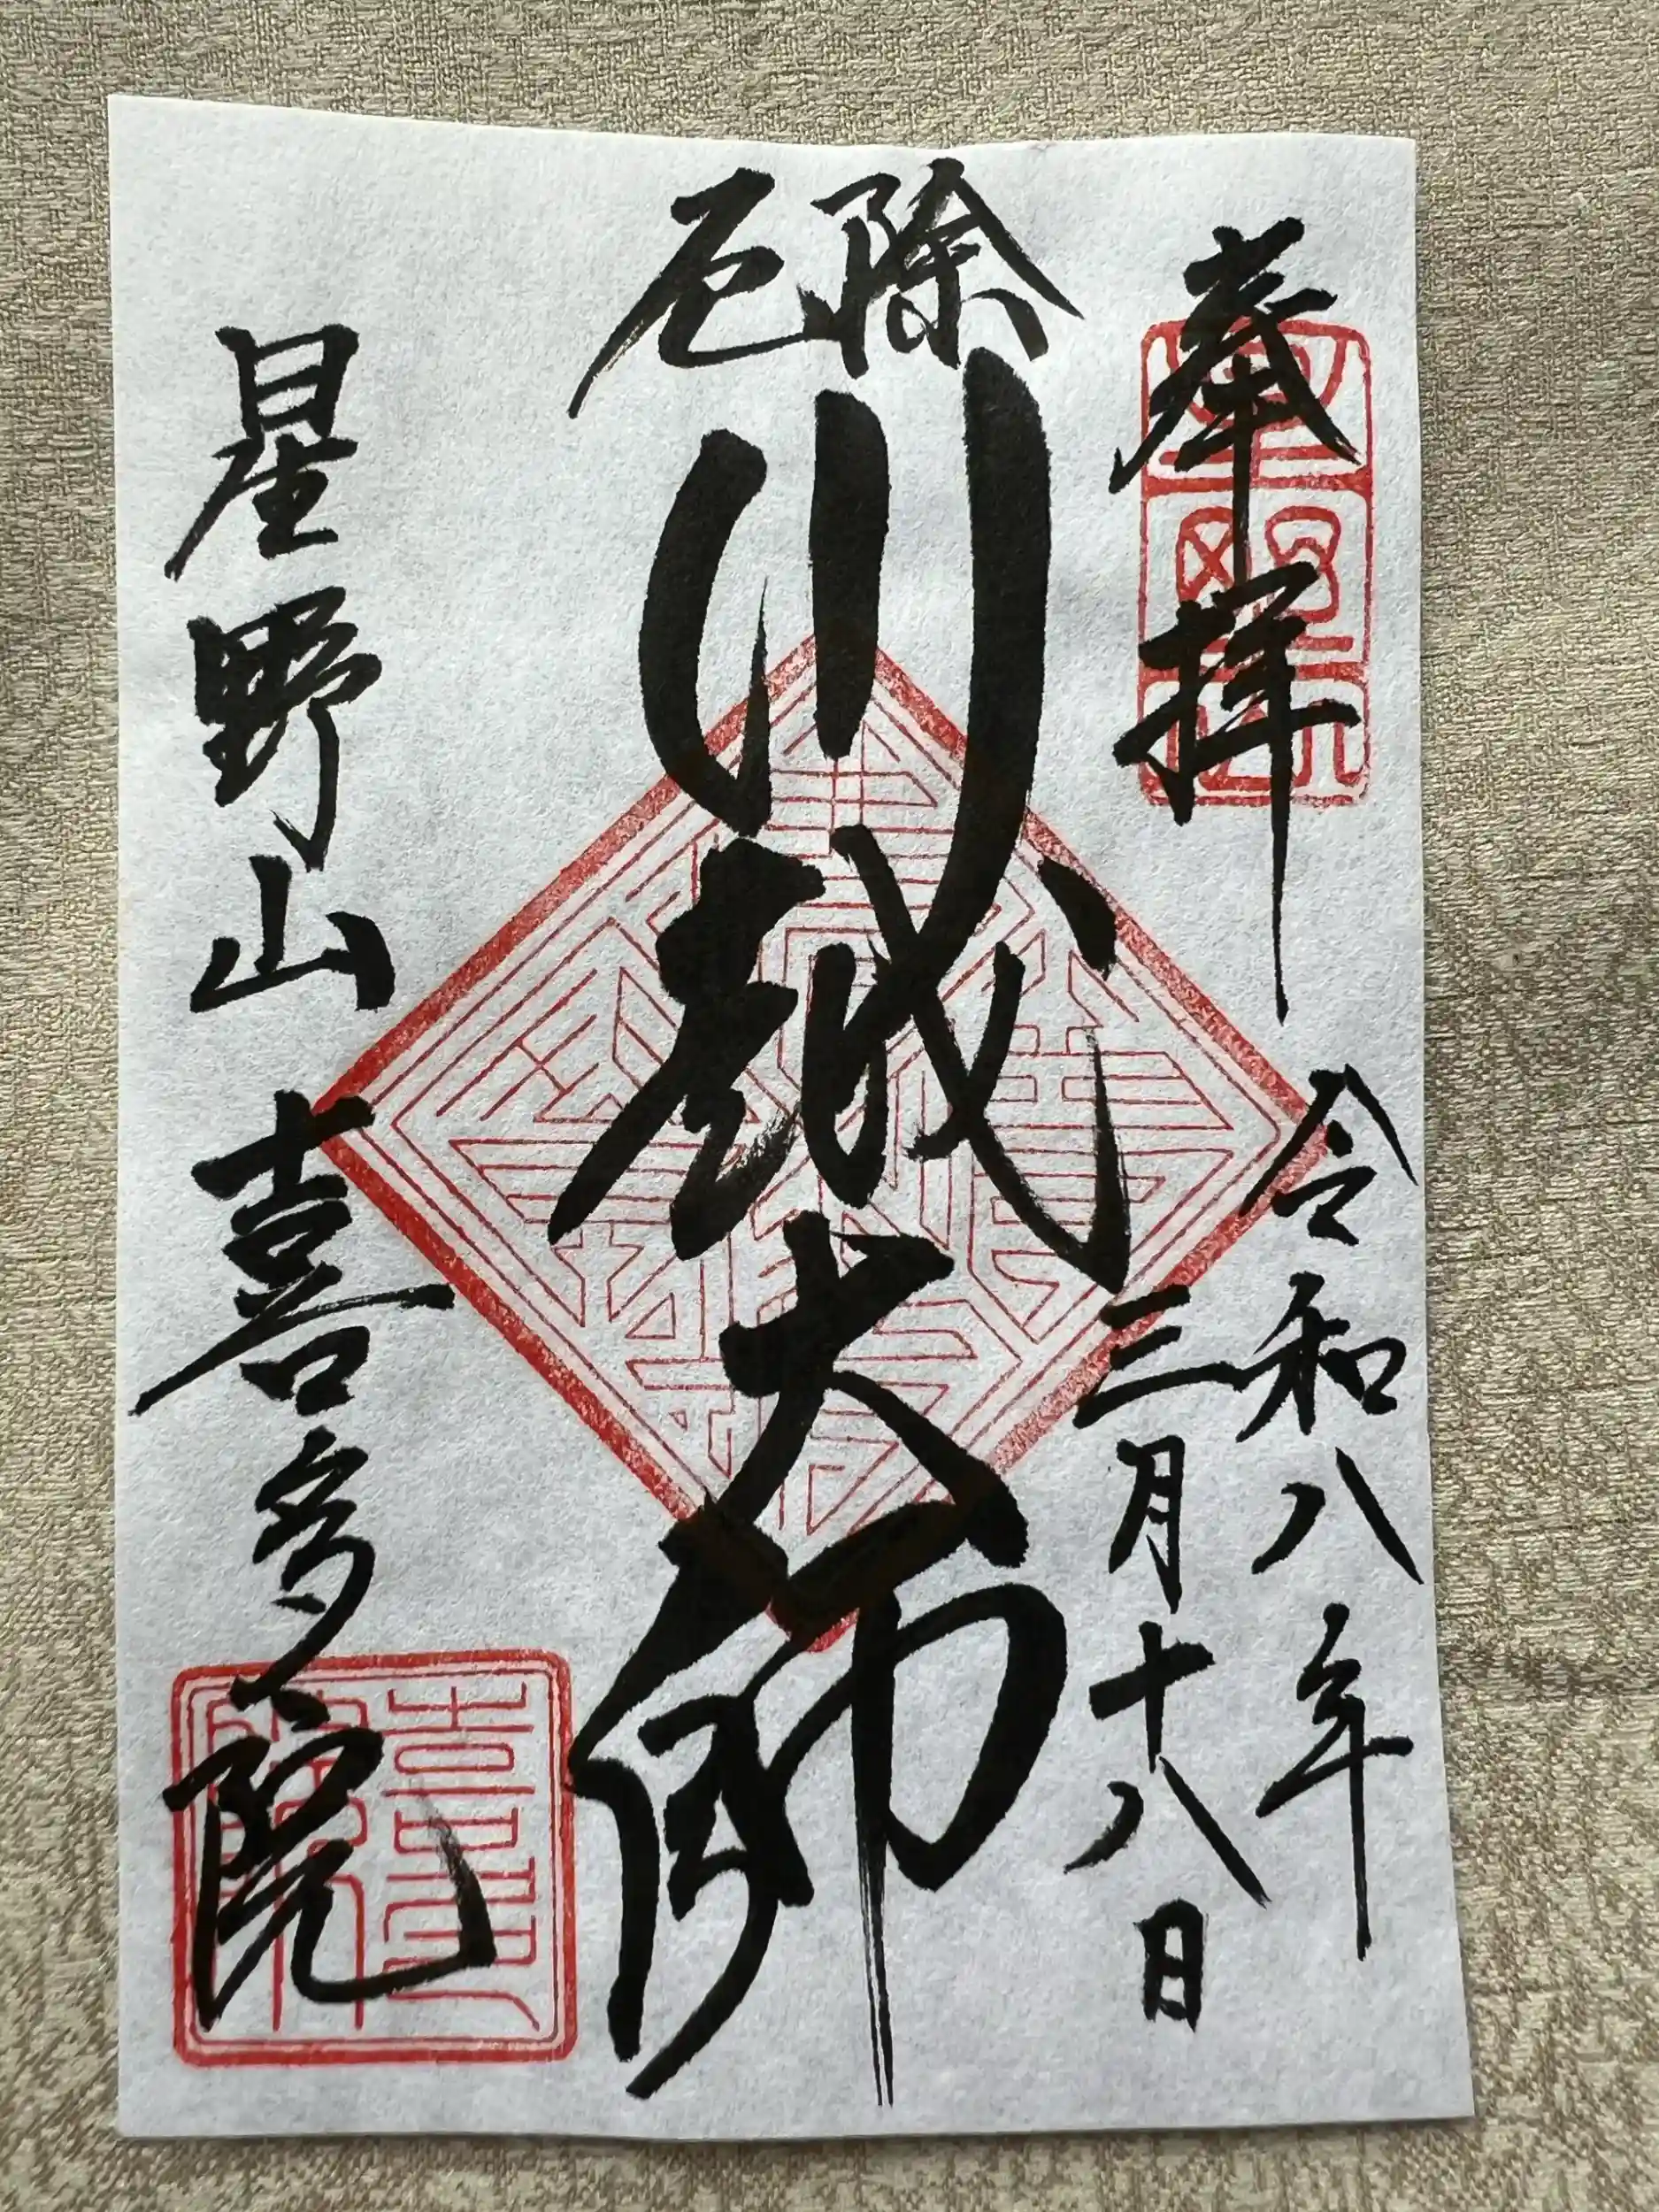 奉拝
令和八年
三月十八日
厄除
川越大師
星野山喜多院